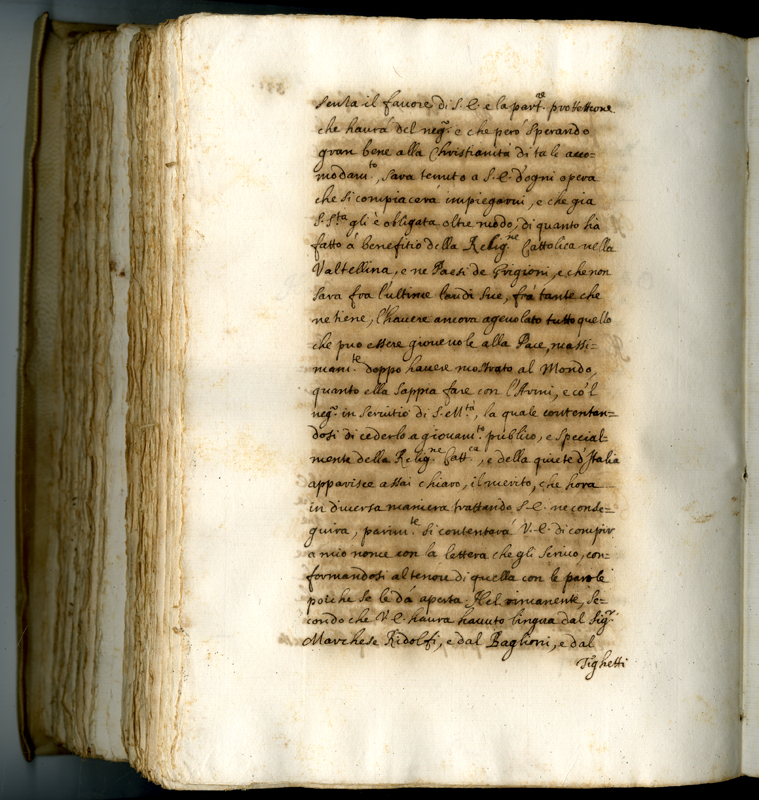 senza il fauore di S. E. e la part.re protettione
che haurá del neg.o e che peró sperando
gran bene alla Christianitá di tale acco=
modam.to, sara tenuto a S. E. d'ogni opera
che si compiacerá impiegarui, e che gia
S. S.ta gli é obligata oltre modo, di quanto há
fatto á benefitio della Relig.ne Cattolica nella
Valtellina, e ne Paesi de Grigioni, e che non
sara fra l'ultime laudi sue, frá tante che
ne tiene, l'hauere ancora ageuolato tutto quello
che puo essere gioueuole alla Pace, massi=
mam.te doppo hauere mostrato al Mondo,
quanto ella sappia fare con l'Armi, e có 'l
neg.o in seruitio di S. M.tá, la quale contentan=
dosi di cederlo a giouam.to publico, e special=
mente della Relig.ne Catt.ca, e della quiete d'Italia
apparisce assai chiaro, il merito, che hora
in diuersa maniera trattando S. E. ne conse=
guira, parim.te si contenterá V. E. di compir
a mio nome con la lettera che gli scriuo, con=
formandosi al tenore di quella con le parole
poiche se le dá aperta. Nel rimanente, se=
condo che V. E. haura hauuto lingua dal Sig.r
Marchese Ridolfi, e dal Baglioni, e dal
Tighetti